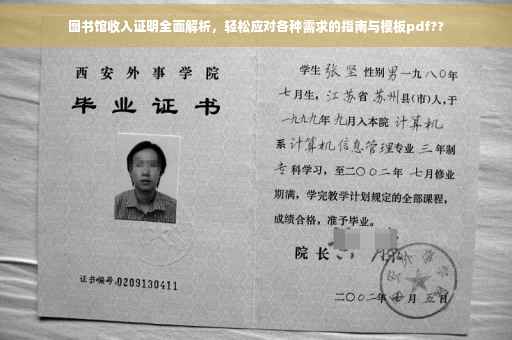 图书馆收入证明全面解析，轻松应对各种需求的指南与模板pdf??
西安外事学院
毕业证书
证书编号:0209130411
学生 张坚 性别男一九八〇年
七月生，江苏省 苏州县(市)人,于
一九九九年 九月入本院 计算机
系 计算机信息管理专业 三 年制
专 科学习，至二〇〇二年 七月修业
期满，学完教学计划规定的全部课程，
成绩合格，准予毕业。
院 长
二〇〇二年 月 五 日